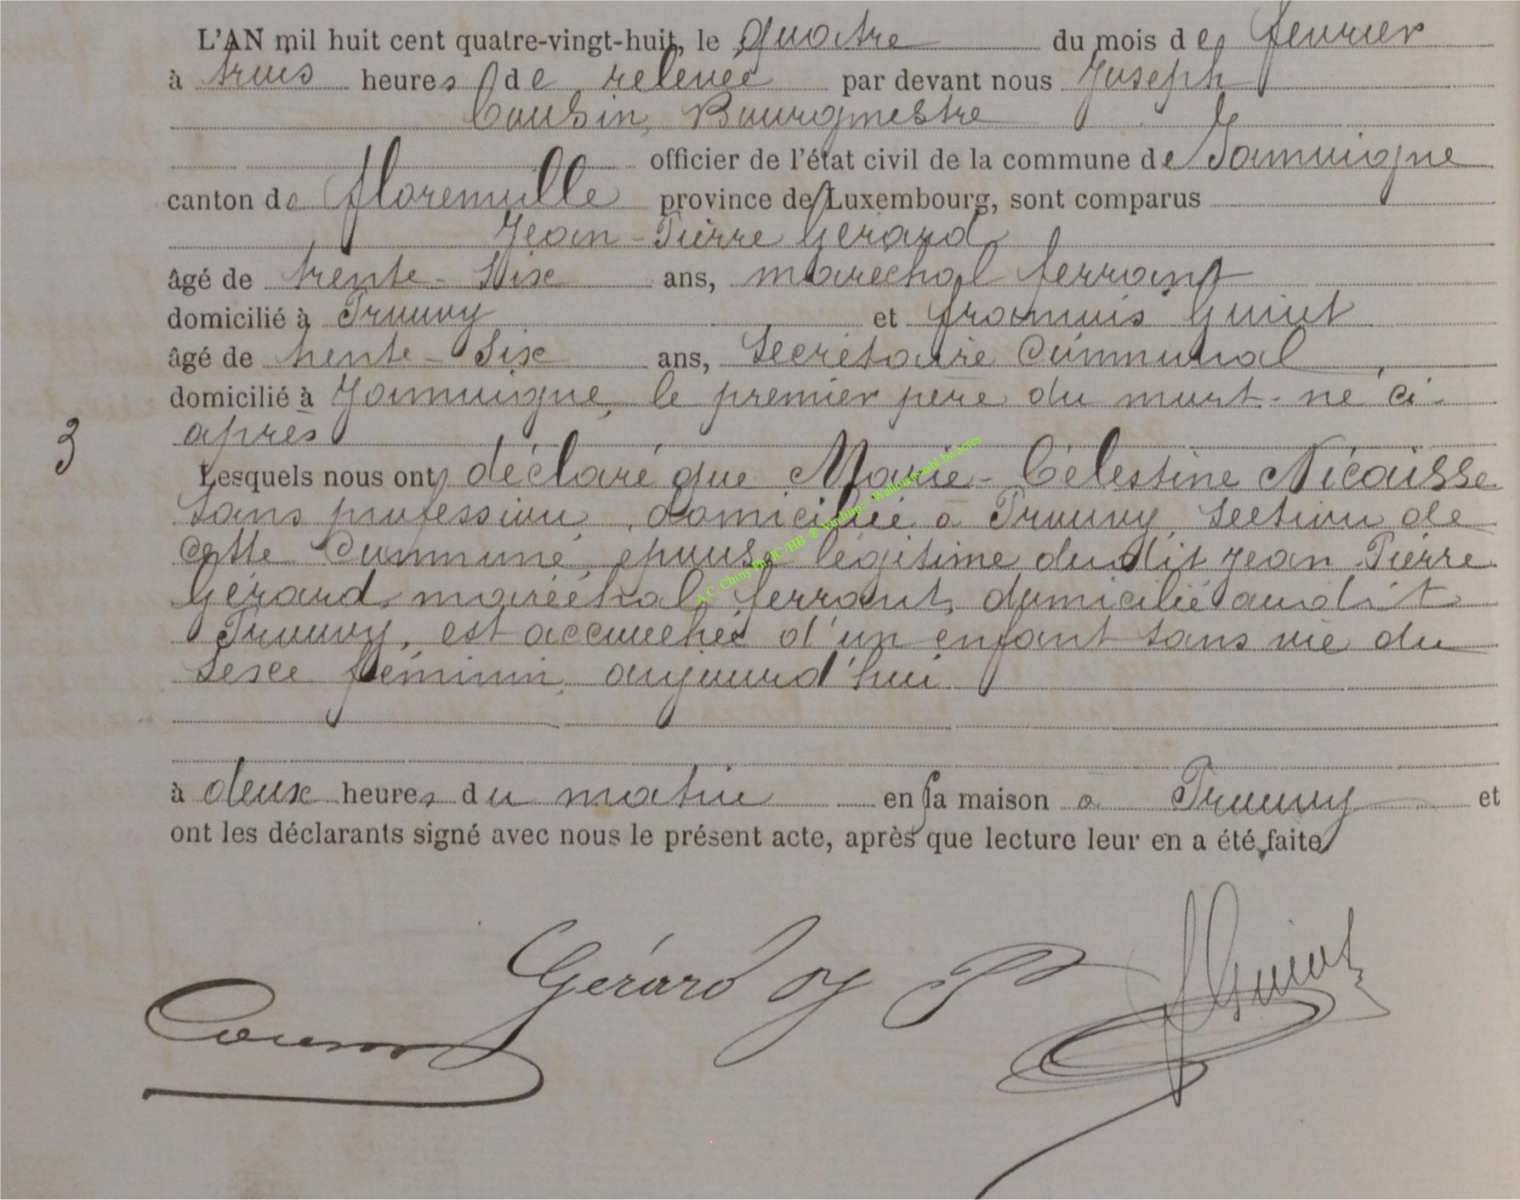 L'AN mil huit cent quatre-vingt-huit, le quatre du mois de février
à trois heures de relevée par devant nous Joseph
Cousin, Bourgmestre
officier de l'état civil de la commune de Jamoigne
canton de florenville province de Luxembourg, sont comparus
Jean-Pierre Gérard
âgé de trente-Six ans, maréchal ferrant
domicilié à Prouvy et françois Guiot
âgé de trente-Six ans, Secrétaire Communal
domicilié à Jamoigne, le premier père du mort-né ci-
après
3
Lesquels nous ont déclaré que Marie-Célestine Nicaisse
sans profession, domiciliée à Prouvy section de
cette Commune, épouse légitime dudit Jean Pierre
Gérard, maréchal ferrant, domicilié audit
Prouvy, est accouchée d'un enfant sans vie du
sexe féminin, aujourd'hui
à deux heures du matin en sa maison à Prouvy et
ont les déclarants signé avec nous le présent acte, après que lecture leur en a été faite
Gérard JP
FGuiot
Cousin